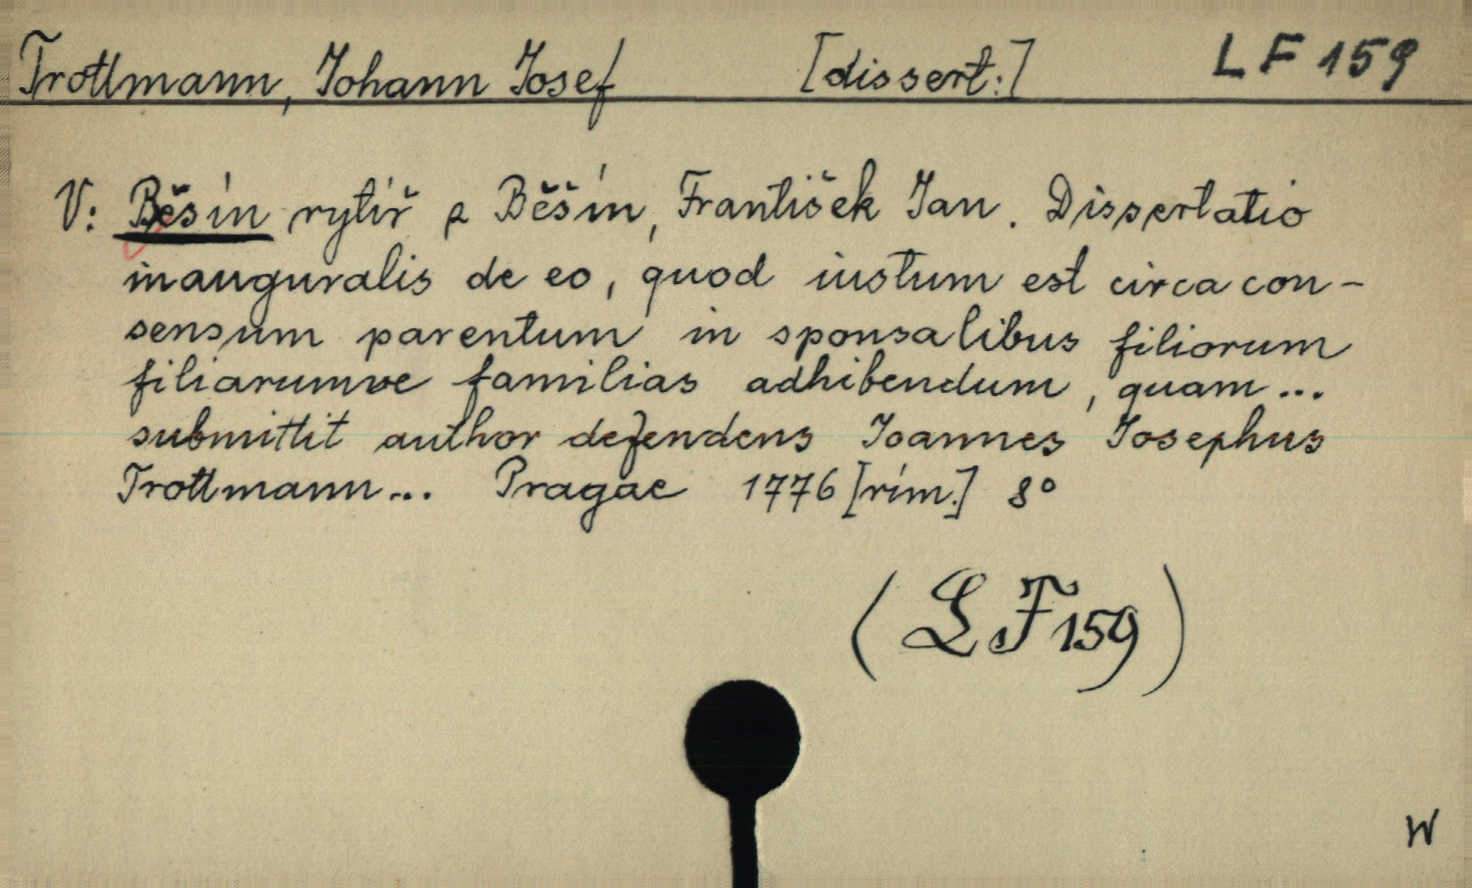 Trottmann, Johann Josef [dissert:] LF 159
V: Běšín rytíř z Běšín, František Jan. Dissertatio
inauguralis de eo, quod iustum est circa con-
sensum parentum in sponsalibus filiorum
filiarumve familias adhibendum, quam...
submittit author defendens Joannes Josephus
Trottmann... Pragae 1776 [rím.] 8°
(LF 159)
W